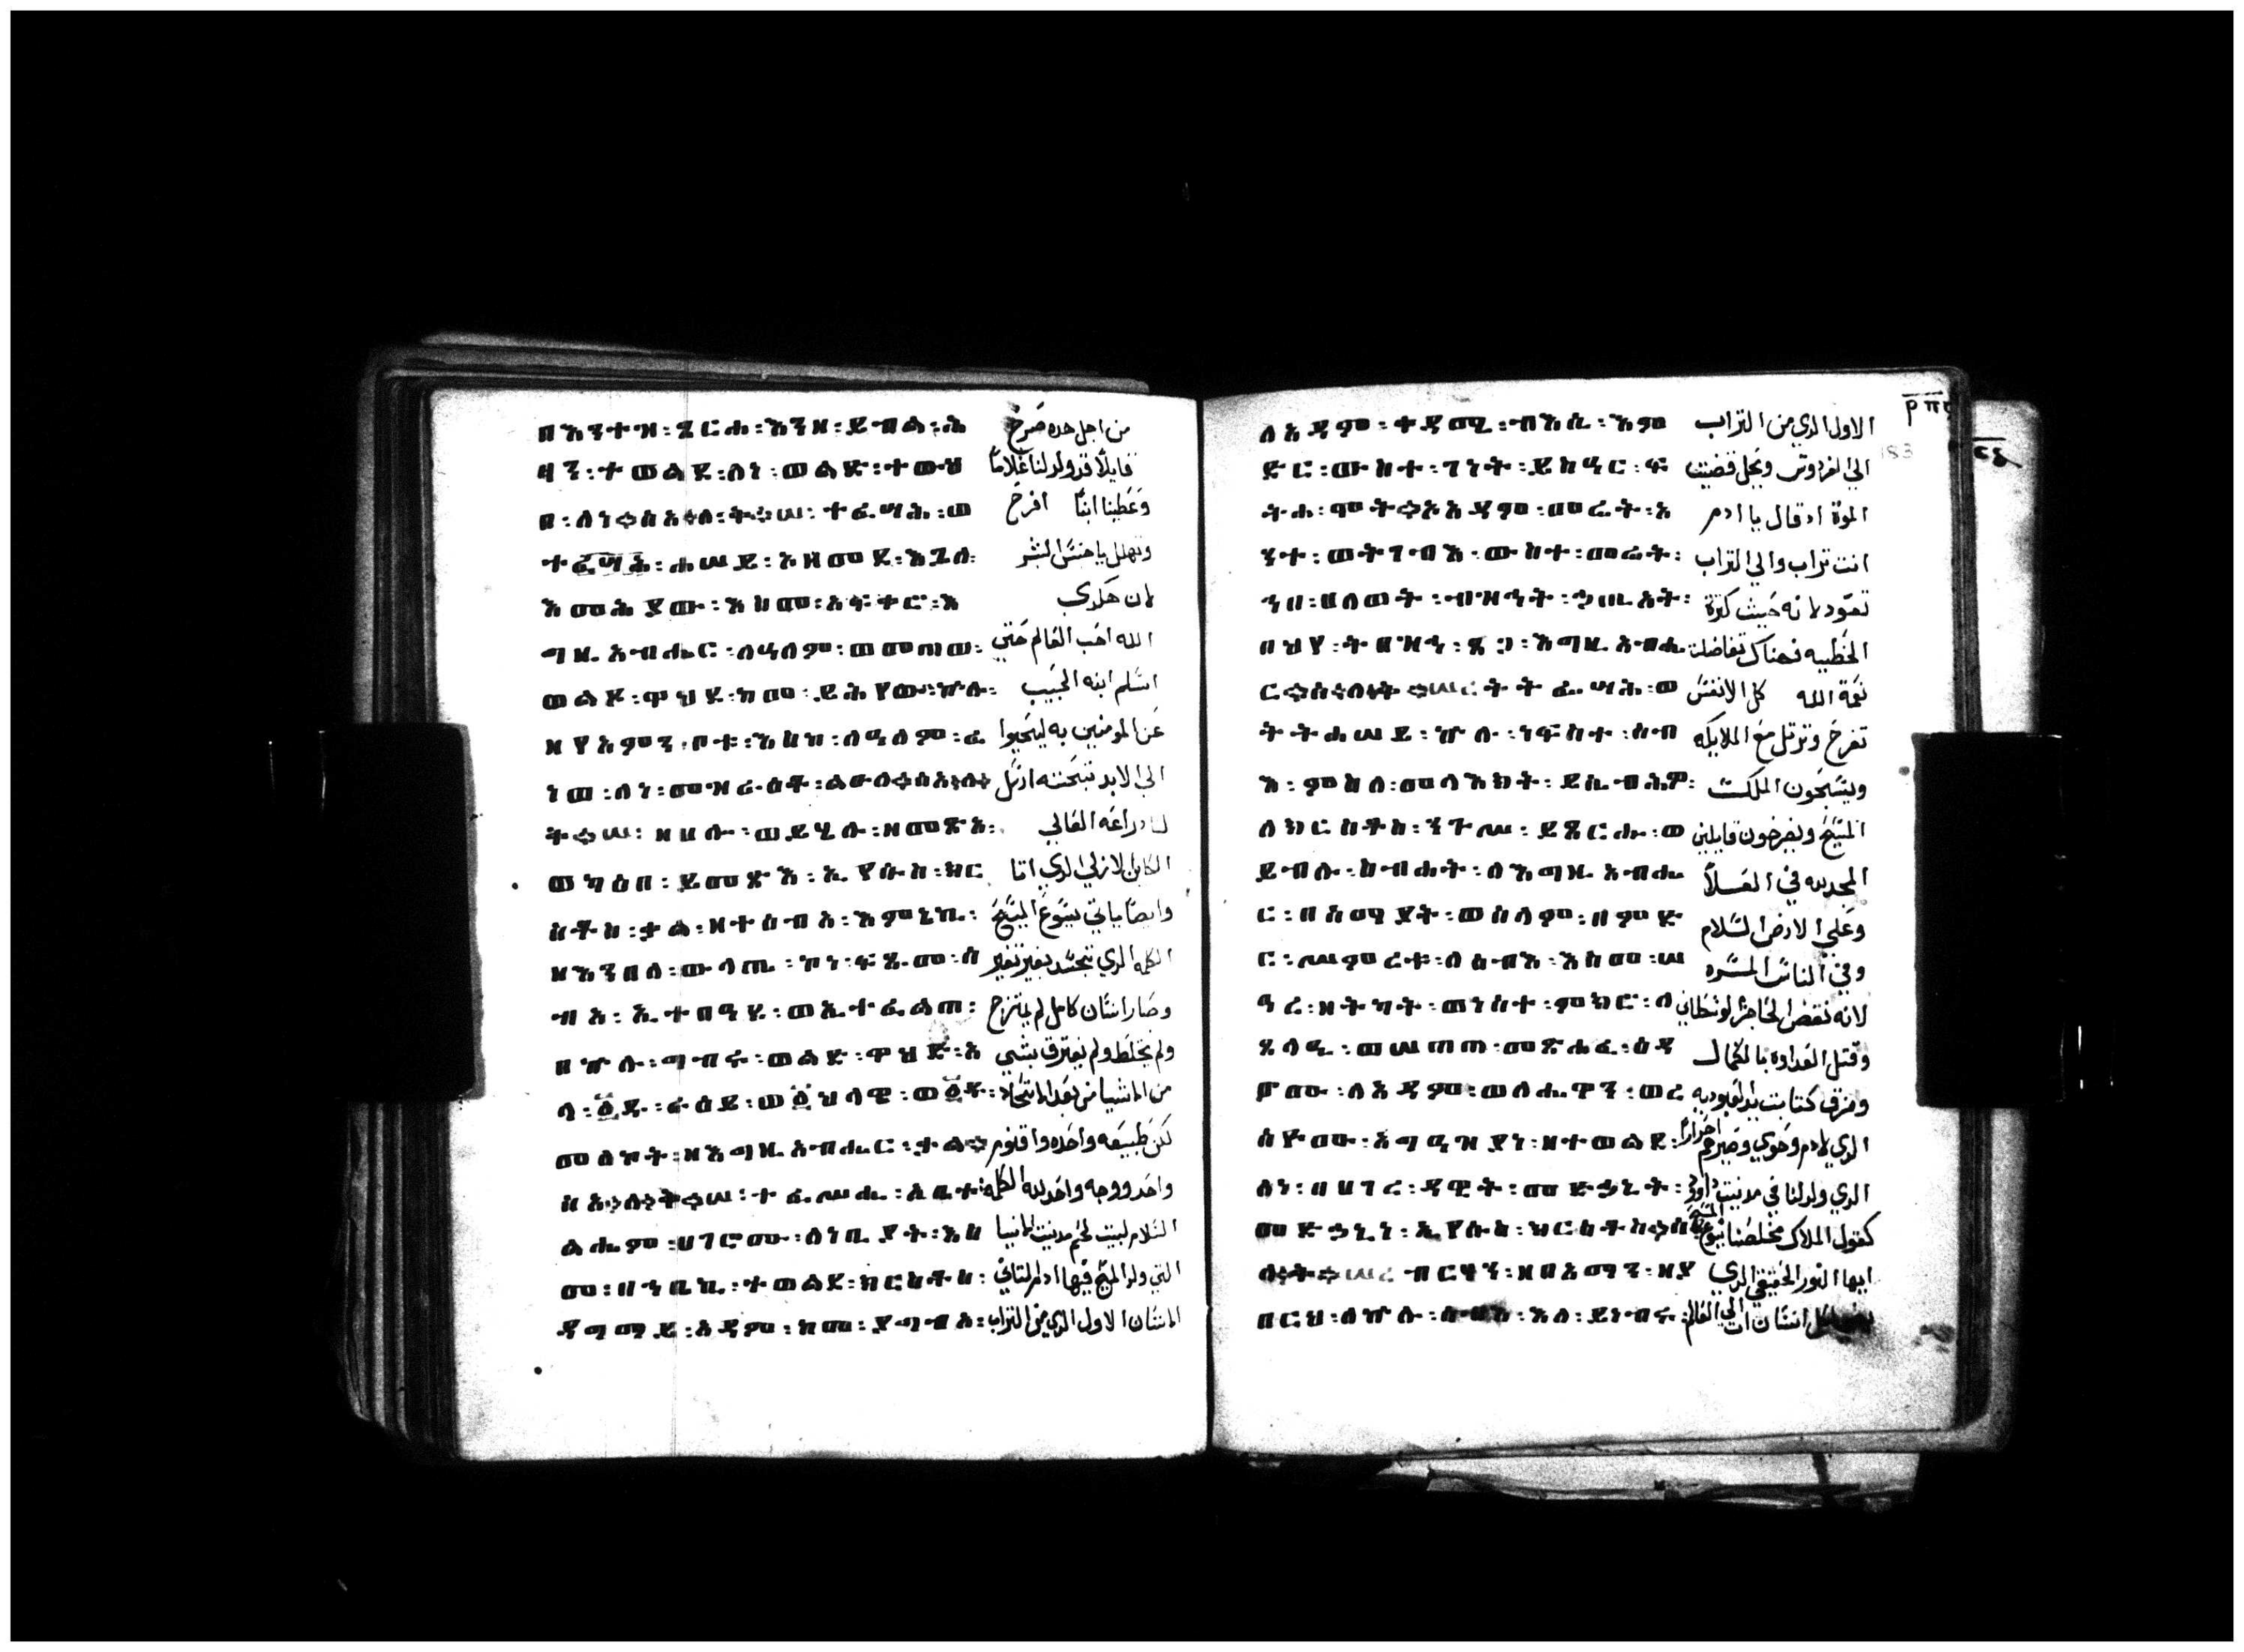 በእንተዝ፡ ጸርሐ፡ እንዘ፡ ይብል፡ ሕ من اجل هده صرخ
ፃን፡ ተወልደ፡ ለነ፡ ወልድ፡ ተውህ قايلا قد ولد لنا غلاما
በ፡ ለነ ተፈሣሕ፡ ወ وعطينا ابنا افرح
ተፈሣሕ፡ ሐሠይ፡ አዘመደ፡ እጓለ፡ وتهلل يا جنس البشر
እመሕያው፡ እስመ፡ አፍቀሮ፡ እ لان هكدي
ግዚአብሔር፡ ለዓለም፡ ወመጠወ፡ الله احب العالم حتي
ወልዶ፡ ዋህደ፡ ከመ፡ ይሕየው፡ ኵሉ፡ اسلم ابنه الحبيب
ዘየአምን፡ ቦቱ፡ እስከ፡ ለዓለም፡ ፈ عن المومنين به ليحيوا
ነወ፡ ለነ፡ መዝራዕቶ፡ ልዑለ الي الابد ارسل
ዘሀሎ፡ ወይሄሉ፡ ዘመጽአ፡ لنا دراعه العالي
ወካዕበ፡ ይመጽእ፡ ኢየሱስ፡ ክር الكاين الازلي الدي اتا
ስቶስ፡ ቃል፡ ዘተሰብአ፡ እምኔኪ፡ وايضا ياتي يسوع المسيح
ዘእንበለ፡ ውላጤ፡ ኮነ፡ ፍጹመ፡ ሰ الكلمه الدي تجسد بغير تغير
ብአ፡ ኢተበዓደ፡ ወኢተፈልጠ፡ وصار انسان كامل لم يمتزج
በኵሉ፡ ግብሩ፡ ወልድ፡ ዋህድ፡ አ ولم يختلط ولم يفترق بشي
ላ፡ ፩ዱ፡ ራዕይ፡ ወ፩ህላዌ፡ ወ፩ዱ፡ من الاشيا من بعد الاتحاد
መለኮት፡ ዘእግዚአብሔር፡ ቃል لكن طبيعه واحده واقنوم
ተፈሥሒ፡ ቤተ፡ واحد ووجه واحد لله الكلمه
ልሔም፡ ሀገሮሙ፡ ለነቢያት፡ እስ السلام لبيت لحم مدينت الانبيا
መ፡ በኀቤኪ፡ ተወልደ፡ ክርስቶስ፡ التي ولد المسيح فيها ادم التاني
ዳግማይ፡ አዳም፡ ከመ፡ ያግብአ፡ الانسان الاول الدي من التراب
ለአዳም፡ ቀዳሚ፡ ብእሲ፡ እም الاول الدي من التراب
ድር፡ ውስተ፡ ገነት፡ ይስዓር፡ ፍ الي الفردوس ويحل قضيت
ትሐ፡ ሞት አአዳም፡ መሬት፡ አ الموت اد قال يا ادم
ንተ፡ ወትገብእ፡ ውስተ፡ መሬት፡ انت تراب والي التراب
ኀበ፡ ሀለወት፡ ብዝኀት፡ ኃጢአት፡ تعود لانه حيث كترة
በህየ፡ ትበዝኅ፡ ጸጋ፡ እግዚአብሔ الخطيه فهناك تفاضلت
ር ትትፌሣሕ፡ ወ نعمة الله كل الانفس
ትትሐሠይ፡ ኵሉ፡ ነፍስተ፡ ሰብ تفرح وترتل مع الملايكه
እ፡ ምስለ፡ መላእክት፡ ይሴብሕዎ፡ ويسبحون الملك
ለክርስቶስ፡ ንጉሥ፡ ይጸርሑ፡ ወ المسيح ويصرخون قايلين
ይብሉ፡ ስብሐት፡ ለእግዚአብሔ المجد لله في العلا
ር፡ በሰማያት፡ ወሰላም፡ በምድ وعلي الارض السلام
ር፡ ሥምረቱ፡ ለሰብእ፡ እስመ፡ ሠ وفي الناس المسره
ዓረ፡ ዘትካት፡ ወነሰተ፡ ምክሮ፡ ለ لانه نقض الحاجز
ጸላዒ፡ ወሠጠጠ፡ መጽሐፈ፡ ዕዳ وقتل العداوه بالكمال
ሆሙ፡ ለአዳም፡ ወለሔዋን፡ ወረ ومزق كتابت يد العبوديه
ሰዮሙ፡ አግዓዝያነ፡ ዘተወልደ፡ الدي لادم وحوي وصيرهم احرارا
ለነ፡ በሀገረ፡ ዳዊት፡ መድኃኒት፡ الدي ولد لنا في مدينت داود
መድኃኒነ፡ ኢየሱስ፡ ክርስቶስ كقول الملاك مخلصنا يسوع المسيح
ብርሃን፡ ዘበአማን፡ ዘያ ايها النور الحقيقي الدي
በርህ፡ ለኵሉ፡ እለ፡ ይነብሩ፡ انسان ات الي العالم
183